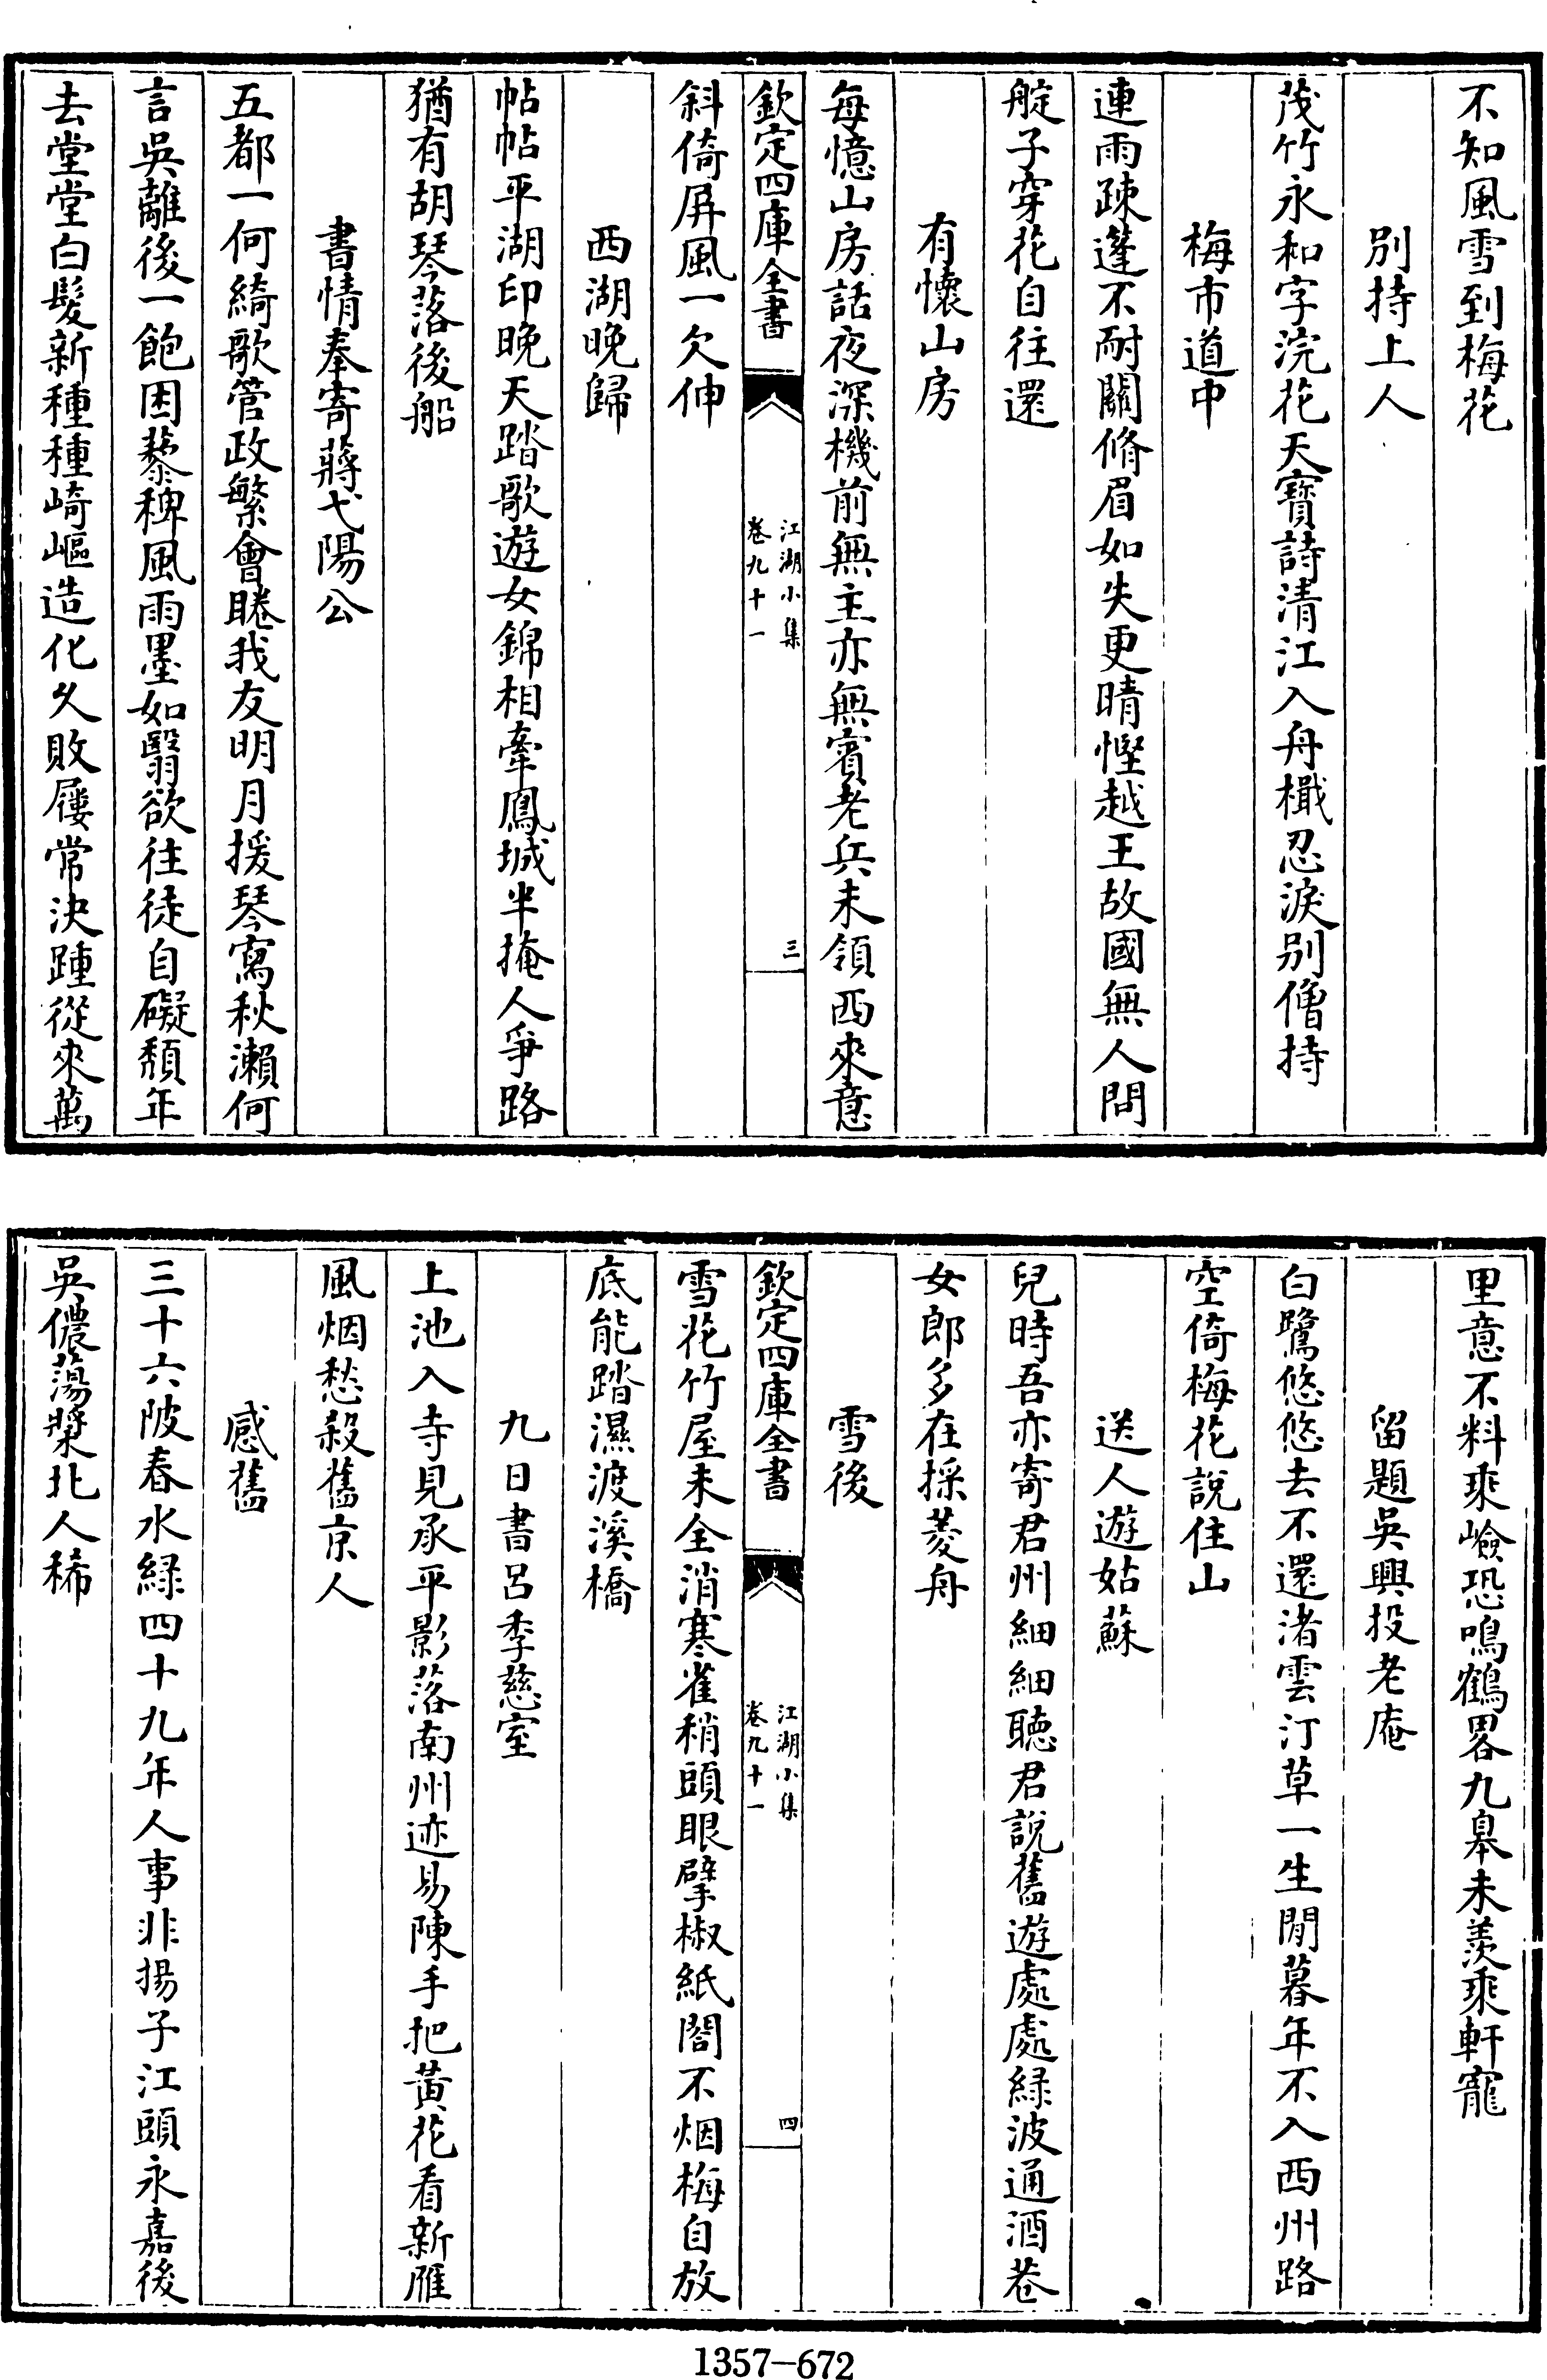 不知風雪到梅花
別持上人
茂竹永和字浣花天寶詩清江入舟檝忍淚別僧持
梅市道中
連雨疎蓬不耐關脩眉如失更晴慳越王故國無人問
艇子穿花自往還
有懷山房
每憶山房話夜深機前無主亦無賓老兵未領西來意
欽定四庫全書
江湖小集
卷九十一
三
斜倚屏風一欠伸
西湖晚歸
帖帖平湖印晚天踏歌遊女錦相牽鳳城半掩人爭路
猶有胡琴落後船
書情奉寄蔣弋陽公
五都一何綺歌管政繁會睠我友明月援琴寫秋瀨何
言吳離後一飽困藜稗風雨墨如翳欲往徒自礙頹年
去堂堂白髮新種種崎嶇造化久敗屨常決踵從來萬
里意不料乘嶮恐鳴鶴畧九皋未羨乘軒寵
留題吳興投老庵
白鷺悠悠去不還渚雲汀草一生閒暮年不入西州路
空倚梅花說住山
送人遊姑蘇
兒時吾亦寄君州細細聽君說舊遊處處綠波通酒巷
女郎多在採菱舟
雪後
欽定四庫全書
江湖小集
卷九十一
四
雪花竹屋未全消寒雀稍頭眼擘椒紙閤不烟梅自放
底能踏濕渡溪橋
九日書呂季慈室
上池入寺見承平影落南州迹易陳手把黃花看新雁
風烟愁殺舊京人
感舊
三十六陂春水綠四十九年人事非揚子江頭永嘉後
吳儂蕩槳北人稀
1357-672